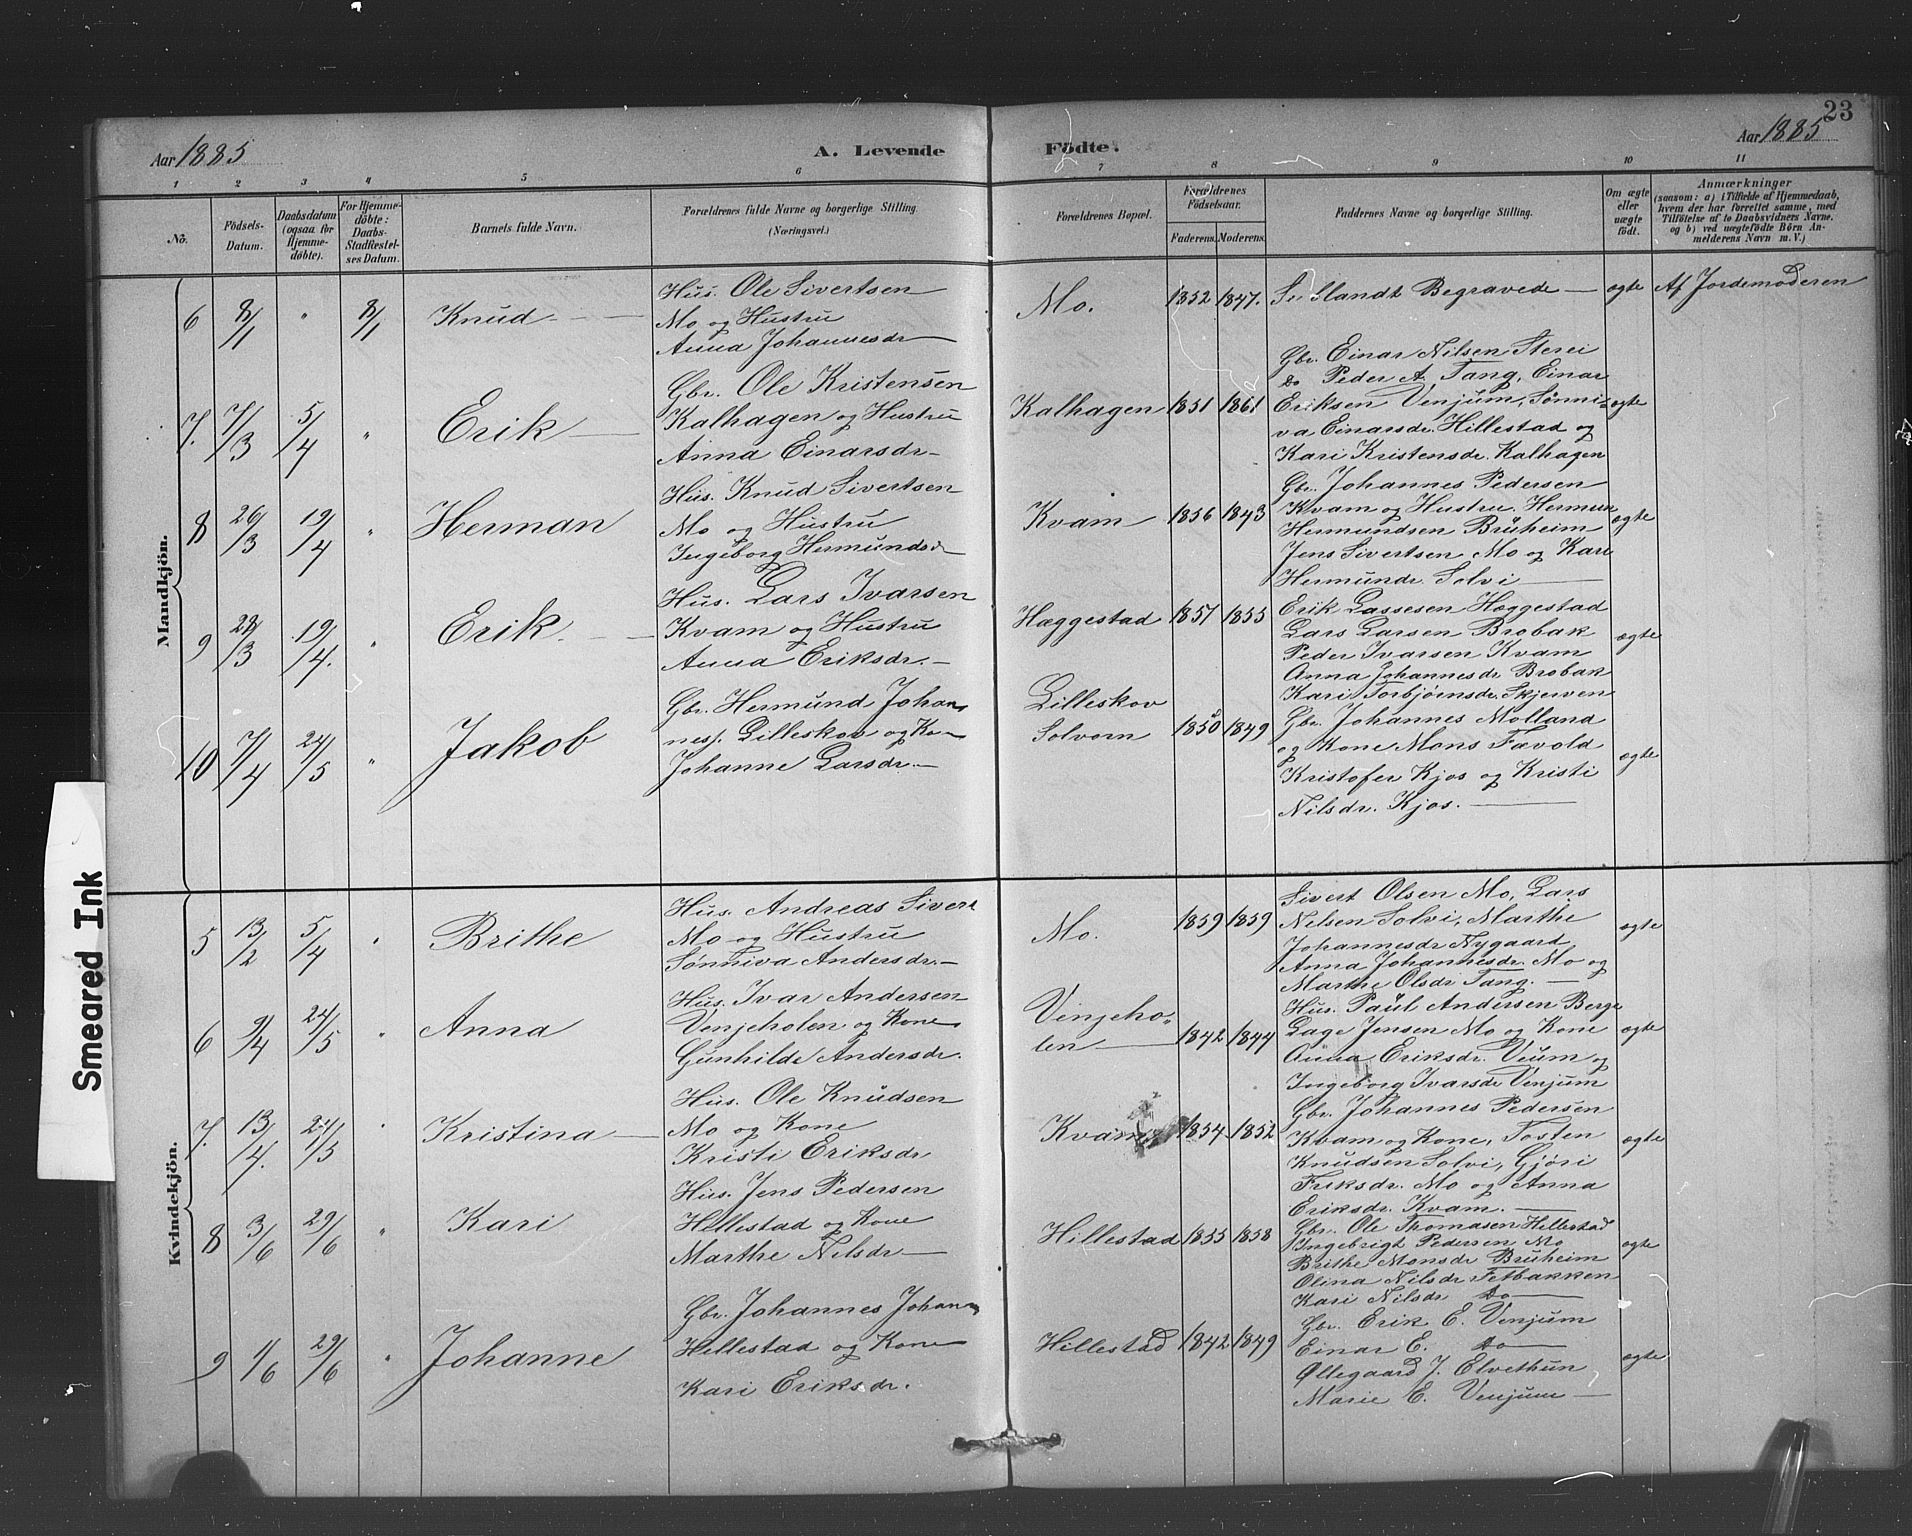 23
Aar 1885
A. Levende
Födte.
Aar 1885
1 2 3 4 5 6 7 8 9 10 11
No.
Födsels-
Datum.
Daabsdatum
(ogsaa for
Hjemme-
döbte).
For Hjemme-
döbte:
Daabs-
Stadfæstel-
ses Datum.
Barnets fulde Navn.
Forældrenes fulde Navne og borgerlige Stilling.
(Næringsvei.)
Forældrenes Bopæl.
Forældrenes
Födselsaar.
Faderens. Moderens.
Faddernes Navne og borgerlige Stilling.
Om ægte
eller
uægte
födt.
Anmærkninger
(saasom: a) i Tilfælde af Hjemmedaab,
hvem der har forrettet samme, med
Tilföielse af to Daabsvidners Navne.
og b) ved uægtefödte Börn An-
melderens Navn m. V.)
Mandkjön.
6 8/1 " 8/1 Knud
Hus. Ole Sivertsen
Mo og Hustru
Anna Johannesdr
Mo. 1852 1847. Begravede ægte Af Jordemoderen
7. 7/3 5/4 " Erik
Gbr. Ole Kristensen
Kalhagen og Hustru
Anna Einarsdr
Kalhagen 1851 1861
Gbr. Einar Nilsen Sterei
Do Peder A. Tang, Einar
Eriksen Venjum, Sønni-
va Einarsdr. Hillestad og
Kari Kristensdr. Kalhagen
ægte
8 26/3 19/4 " Herman
Hus. Knud Sivertsen
Mo og Hustru
Ingeborg Hermundsd
Kvam 1856 1843
Gbr. Johannes Pedersen
Kvam og Hustru. Hermun
Hermundsen Bruheim
Jens Sivertsen Mo og Kari
Hermundr. Solvi
ægte
9 22/3 19/4. " Erik.
Hus. Lars Ivarsen
Kvam og Hustru
Anna Eriksdr.
Hæggestad 1857 1855
Erik Lassesen Hæggestad
Lars Larsen Brobak
Peder Ivarsen Kvam
Anna Johannesdr Brobak
Kari Torbjørnsdr. Skjerven
ægte
10 7/4 24/5 " Jakob
Gbr. Hermund Johan
ness. Lilleskov og Ko-
Johanne Larsdr.
Lilleskov
Solvorn 1850 1849
Gbr. Johannes Molland
og Kone Mons Fævold
Kristofer Kjos og Kristi
Nilsdr. Kjos.
ægte
Kvindekjön.
5 13/2 5/4 " Brithe
Hus. Andreas Sivert
Mo og Hustru
Sønniva Andersdr.
Mo. 1859 1859
Sivert Olsen Mo, Lars
Nelsen Solvi, Marthe
Johannesdr Nygaard
Anna Johannesdr. Mo og
Marthe Olsdr Tang.
ægte
6 9/4 24/5 " Anna
Hus. Ivar Andersen
Venjeholen og Kone
Gunhilde Andersdr.
Venjeho-
len 1842 1844
Hus. Paul Andersen Berge
Lage Jensen Mo og Kone
Anna Eriksdr. Veum og
Ingeborg Ivarsdr Venjum
ægte
7. 13/4. 24/5 " Kristina
Hus. Ole Knudsen
Mo og Kone
Kristi Eriksdr
Kvam 1854 1852
Gbr. Johannes Pedersen
Kvam og Kone, Tosten
Knudsen Solvi, Gjøri
Eriksdr. Mo og Anna
Eriksdr. Kvam.
ægte
8 3/6 29/6 " Kari
Hus. Jens Pedersen
Hillestad og Kone
Marthe Nilsdr
Hillestad 1855 1858
Gbr. Ole Thomasen Hillestad
Ingebrigt Pedersen Mo
Brithe Monsdr Bruheim
Olina Nilsdr Fetbakken
Kari Nilsdr Do
ægte
9 1/6 29/6 " Johanne
Gbr. Johannes Johan
Hillestad og Kone
Kari Eriksdr.
Hillestad 1842 1849
Gbr. Erik E. Venjum
Einar E. Do
Øllegaard J. Elvethun
Marie E. Venjum
ægte
Smeared Ink